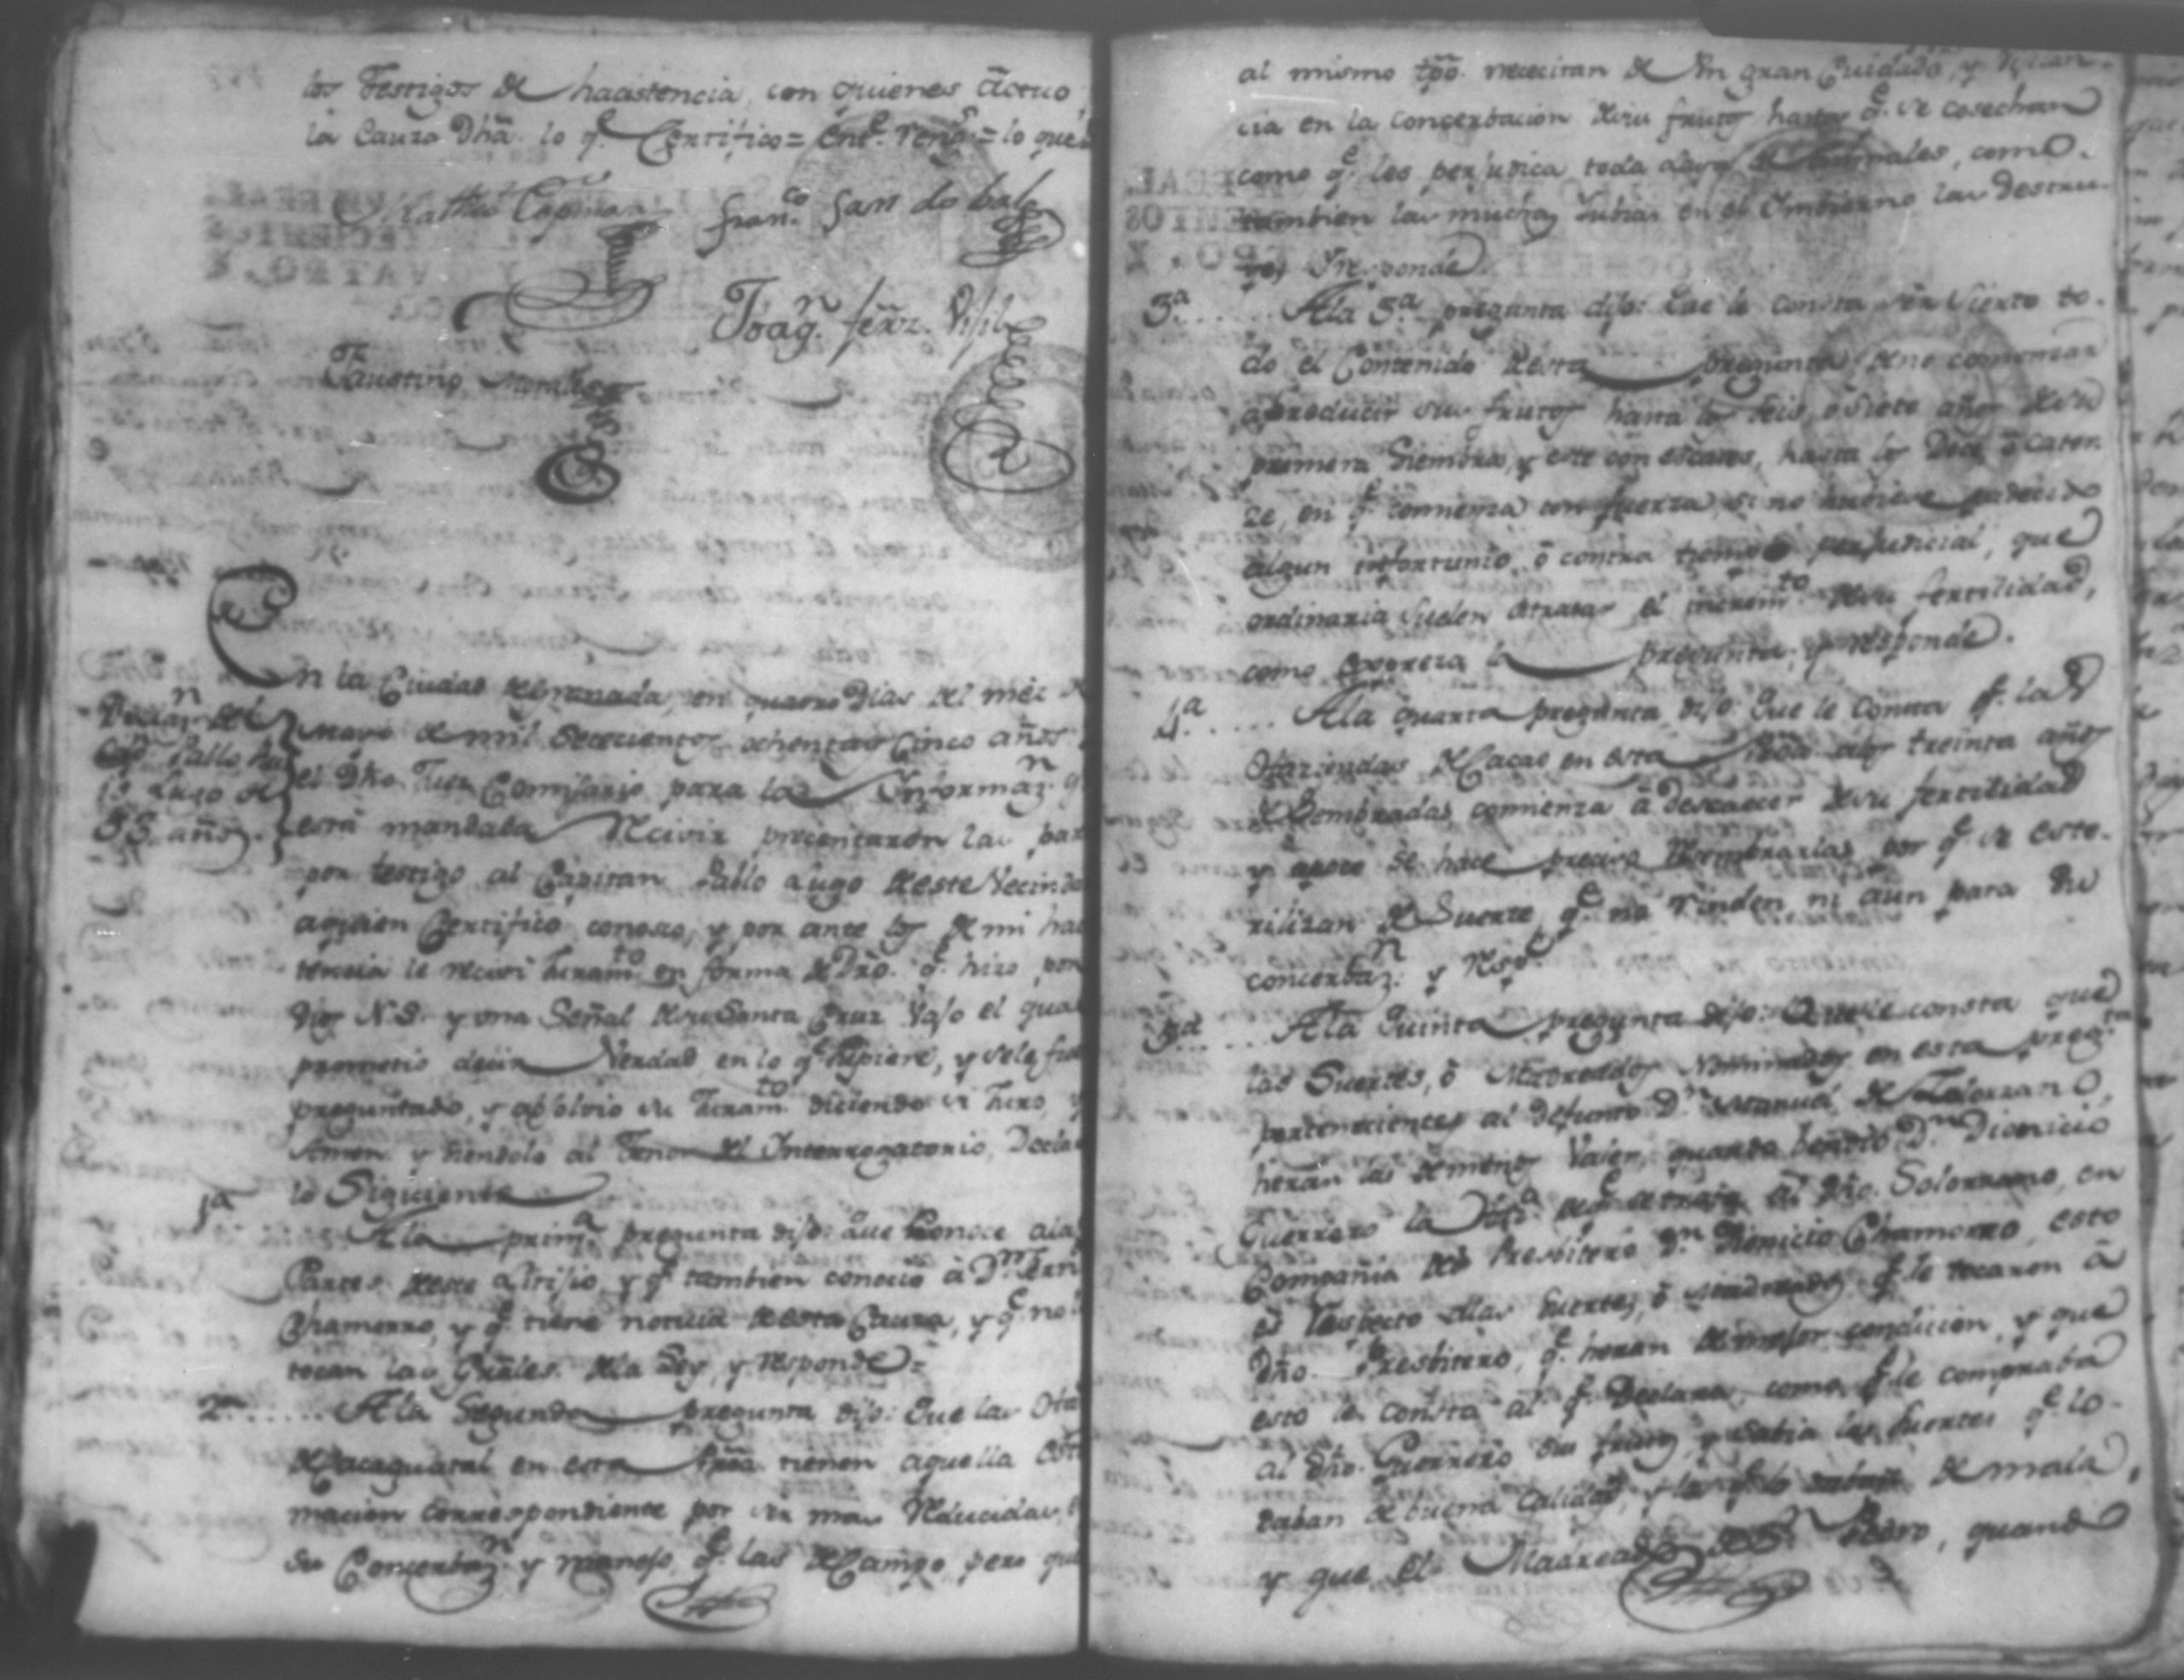 los testigos de hacistencia, con quienes actuo
la Cauza Dhâ. lo q.e Certifico = Ent.e reng.s = lo que
Matheo Espinosa
Fran.co Sandobal
Joaq.n ferrz.
Faustino Morales
En la Ciudad de Granada, en quatro dias del mez de
Declaz.n del
Mayo de mil setecientos ochenta y Cinco años
Cap.n Pablo Au
el dho Juez Comisario para la Informaz.n q
go de
está mandada Recivir precentaron las par
55 años.
por testigo al Capitan Pablo Augo de este Vecinda
aquien Certifico conosco, y por ante los de mi hac
tencia le recivi Juram.to en forma de Dro. q.e hizo por
Dios N.S. y una Señal de su Santa Cruz vajo el qual
prometio decir Verdad en lo q.e supiere, y se le fue
preguntado, y absolvio su Juram.to diciendo si Juro, y
Amen y siendolo al Tenor del Interrogatorio, Decla
lo Siguiente
1.a
A la prim.a pregunta dijo: Que Conoce a las
Partes de este Litijio, y q.e tambien conocio à D.n
Chamorro, y q.e tiene noticia de esta Cauza, y q.e no l
tocan las Grales. de la Ley, y responde =
2.a ..... A la Segunda pregunta dijo: Que las
de Cacaguatal en esta Proâ. tienen aquella esti
macion correspondiente por ser mas Reducidas
su Concerbaz.n y manejo, q.e las de Campo, pero que
al mismo tpô. nececitan de un gran Cuidado, y Vijilan-
cia en la concerbacion de su frutos hasta q.e se cosechan
como q.e les perjudica toda clase de Animales, como
tambien las muchas Lubias en el Imbierno las destru-
ye, y responde
3.a ...... A la 3.a pregunta dijo: Que le consta ser Cierto to-
do el Contenido de esta pregunta de no comenzar
a producir sus frutos hasta los seis, o siete años de su
primera Siembra, y este con escases, hasta los Doce ò cator-
ze, en q.e comienza con fuerza si no hubiese padecido
algun infortunio, ò contra tiempo perjudicial, que
ordinaria suelen atrasar el increm.to de su fertilidad,
como expresa la pregunta, y responde.
4.a .... A la quarta pregunta dijo: Que le Consta q.e las
Haziendas de Cacao en esta Proâ. a los treinta años
de Sembradas comienza à descaecer de su fertilidad
y apoco se hace preciso Resembrarlas por q.e se este-
rilizan de Suerte, q.e no rinden ni aun para su
concerbaz.n y Resp.e
5.a ..... A la Quinta pregunta dijo: Que le consta que
las Suertes, ò Madreados Nominados en esta preg.ta
pertenecientes al defunto D.n Manuel de Solorzano,
heran las de menos Valor, quando bendio D.n Dionicio
Guerrero la Haz.da al dho. Solorzano, en
Compañia del Presbitero D.n Dionicio Chamorro, esto
es Respecto a las Suertes, ò Madreados q.e le tocaron à
dho. Presbitero, q.e heran de mejor condicion, y que
esto le consta al q.e Declara, como q.e le compraba
al dho. Guerrero sus frutos y sabia las Suertes q.e lo
daban de buena Calidad, y las q.e lo daban de mala,
y que el Madreado de S.n Pedro, quando